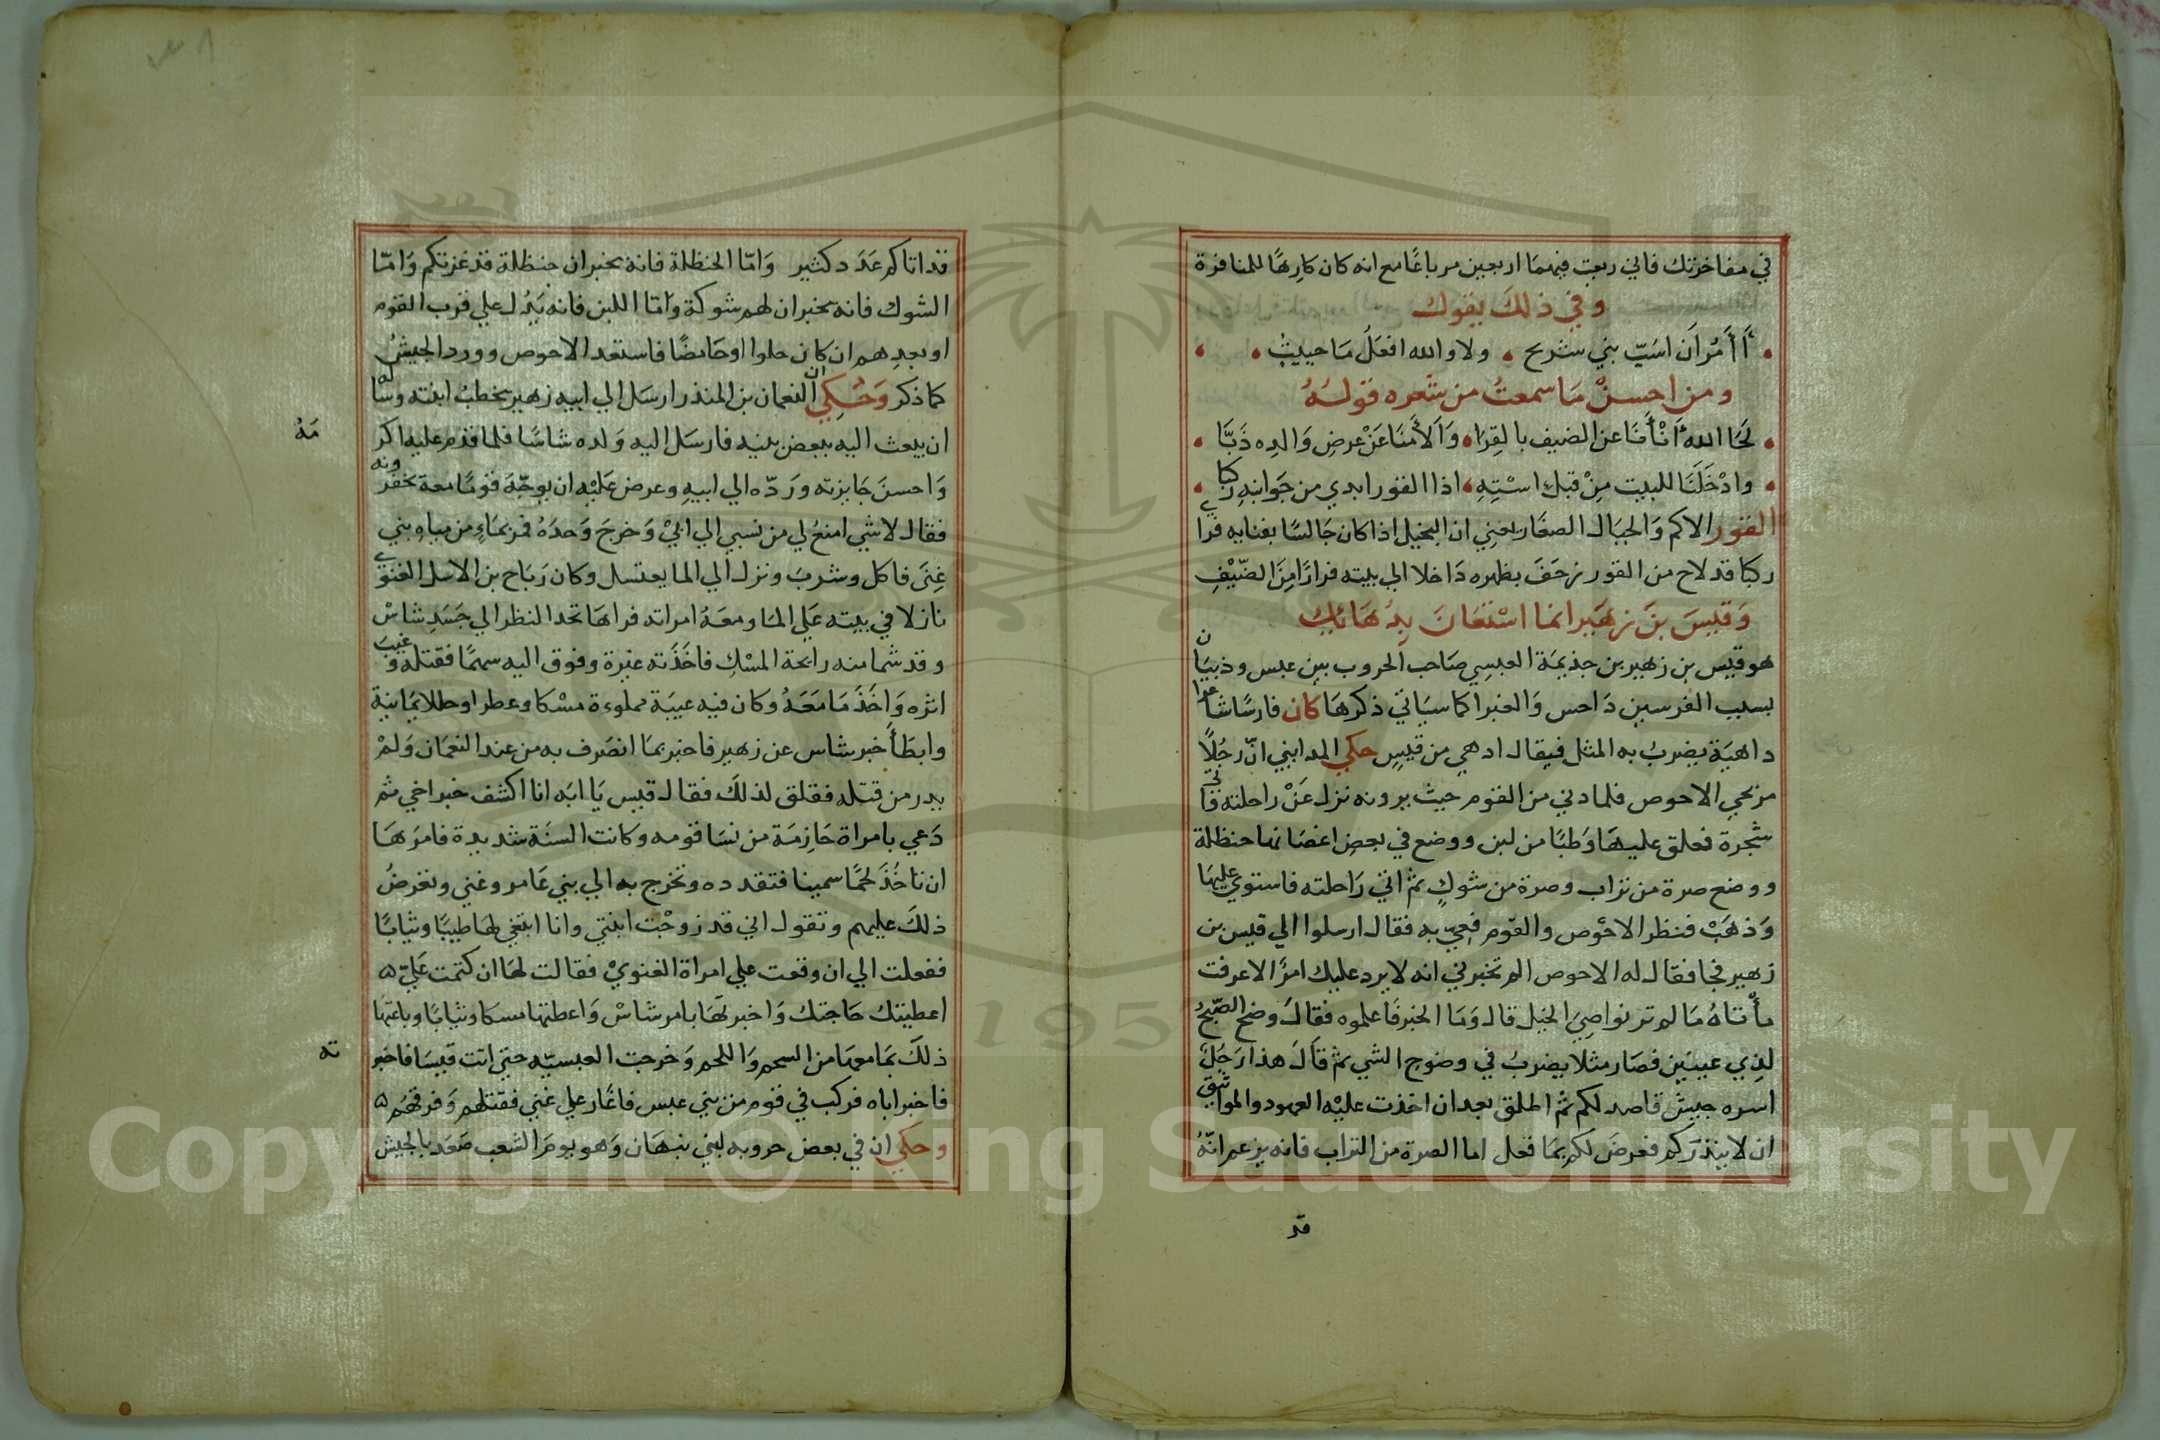 في مفاخرتك فاني ربعت فيهما اربعين مرباعًا مع انه كان كارهًا للمنافرة
وفي ذلك يقول
أَأَمُرُ اَن اسُبّ بني شريح ولا والله افعَلُ مَا حييتُ
ومن احسنْ مَا سمعتُ من شعره قولهُ
لَحَا الله أَنْأَنَا عن الضيف بالقِرَا وَأَلْأَمَنَا عَنْ عرضِ وَالِده ذَبَّا
وادْخَلَنَا للبيت مِنْ قبلِ اسْتِهِ اذا القور ابدي من جَوانبه ركبا
القور الاكم وَالجبال الصغار يعني ان البخيل اذا كان جَالسًا بفنايه فراي
ركبا قد لاح من القور زحَفَ بظهره دَاخلا الي بيته فرارًا مِنَ الضّيْفِ
وَقيسَ بن زهَير انما اسْتعَانَ بدهَائك
هو قيس بن زهير بن جذيمَة العبسِي صَاحب الحروب بين عبس وذبيَان
بسبب الفرسين دَاحس وَالغبرا كما سيَاتي ذكرهَا كان فارسًا شاعرا
داهيَة يضربُ به المثل فيقال ادهي من قيسٍ حكي المدايني انّ رجُلًا
مر بحي الاحوص فلما دني من القوم حيث يرونه نزل عَنْ راحلته فاتي
شجرة فعلق عليهَا وَطبًا من لبن ووضع في بعض اغصَانها حنظلة
ووضع صرة من تراب وصرة من شوكٍ ثم اتي رَاحلته فاستوي عليهَا
وَذهَبْ فنظر الاحْوص والقوم فعيّ به فقال ارسلوا الي قيس بن
زهير فجا فقال له الاحوص الم تخبرني انه لا يرد عليك امرًا الا عرفت
مأتاهُ مَا لم تر نواصِيَ الخيل قال وَمَا الخبر فَاعلموه فقالَ وضح الصّبحُ
لذِي عينَين فصَار مثلا يضربُ في وضوح الشي ثم قاَلَ هذا رَجُل
اسره جيش قاصد لكم ثم اطلق بعد ان اخذت عليْه العهود والمواثيق
ان لا ينذرَكم فعرضَ لكم بمَا فعل اما الصرة من التراب فانه يزعم انّهُ
قد
قد اتاكم عَدَد كثير وَامّا الحنظلة فانه يخبر ان حنظلة قد غزتكم وَامّا
الشوك فانه يخبر ان لهم شوكة وَامّا اللبن فانه يَدُل علي قرب القوم
او بعدِهم ان كان حلوا او حَامِضًا فاستعد الاحوص وورد الجيشُ
كما ذكر وَحُكِي ان النعمان بن المنذر ارسَل الي ابيه زهير يخطبُ ابنته وسَاله
ان يبعث اليه ببعض بنيه فارسَل اليه وَلده شاسًا فلما قدم عليه اكر مَهُ
وَاحسنَ جَايزته وَرَدّه الي ابيهِ وعرض عَليْه ان يوجّهَ قومًا معه يخفرونه
فقال لاشي امنعُ لي من نسبي الي ابيْ وَخرجَ وَحدَهُ فمر بمَاءٍ من مياه بني
غِنيَ فاكل وشربَ ونزل الي الما يغتسل وكان رَبَاح بن الاسل الغنوي
نازلا في بيته عَلي المَا ومعَهُ امراته فراهَا تحد النظر الي جَسَدِ شاسْ
وقد شما منه رايحة المسْكِ فاخَذَته غيرة وفوق اليه سهمًا فقتله وغيبَ
اثره وَاخَذَ مَا مَعَهُ وكان فيه عيبَة مملوءة مسْكا وعطرا وحللا يمَانية
وابطَأَ خبر شاس عن زهير فاخبر بمَا انصَرف به من عند النعمَان وَلمْ
يدر من قتله فقلق لذلَك فقال قيس يَا ابَه انا اكشف خبر اخي ثم
دَعي بامراة حَازِمَة من نسَا قومه وكانت السنَة شديدة فامرَهَا
ان تاخُذَ لحمًا سمينا فتقدده وتخرج به الي بني عَامر وغني وتعرضُ
ذلكَ عليهم وتقول اني قد زوجْت ابنتي وانا ابتغي لهَا طيبًا وثيابًا
ففعلت الي ان وقعت علي امراة الغنويْ فقالت لهَا ان كتمت عَليّ ۵
اعطيتك حَاجتك وَاخبرتهَا بامر شاسْ وَاعطتها مسكا وثيابًا وباعتها
ذلكَ بمَا معهَا من السحم وَاللحم وَخرجت العبسيّه حتي اتت قيسَا فاخبر ته
فاخبر اباه فركب في قوم من بني عبس فاغَار علي غني فقتلهم وَفرقهُم ۵
وحكي ان في بعض حروبه لبني نبهَان وَهو يومَر الشعب صَعَد بالجيش
Copyright © King Saud University
1957